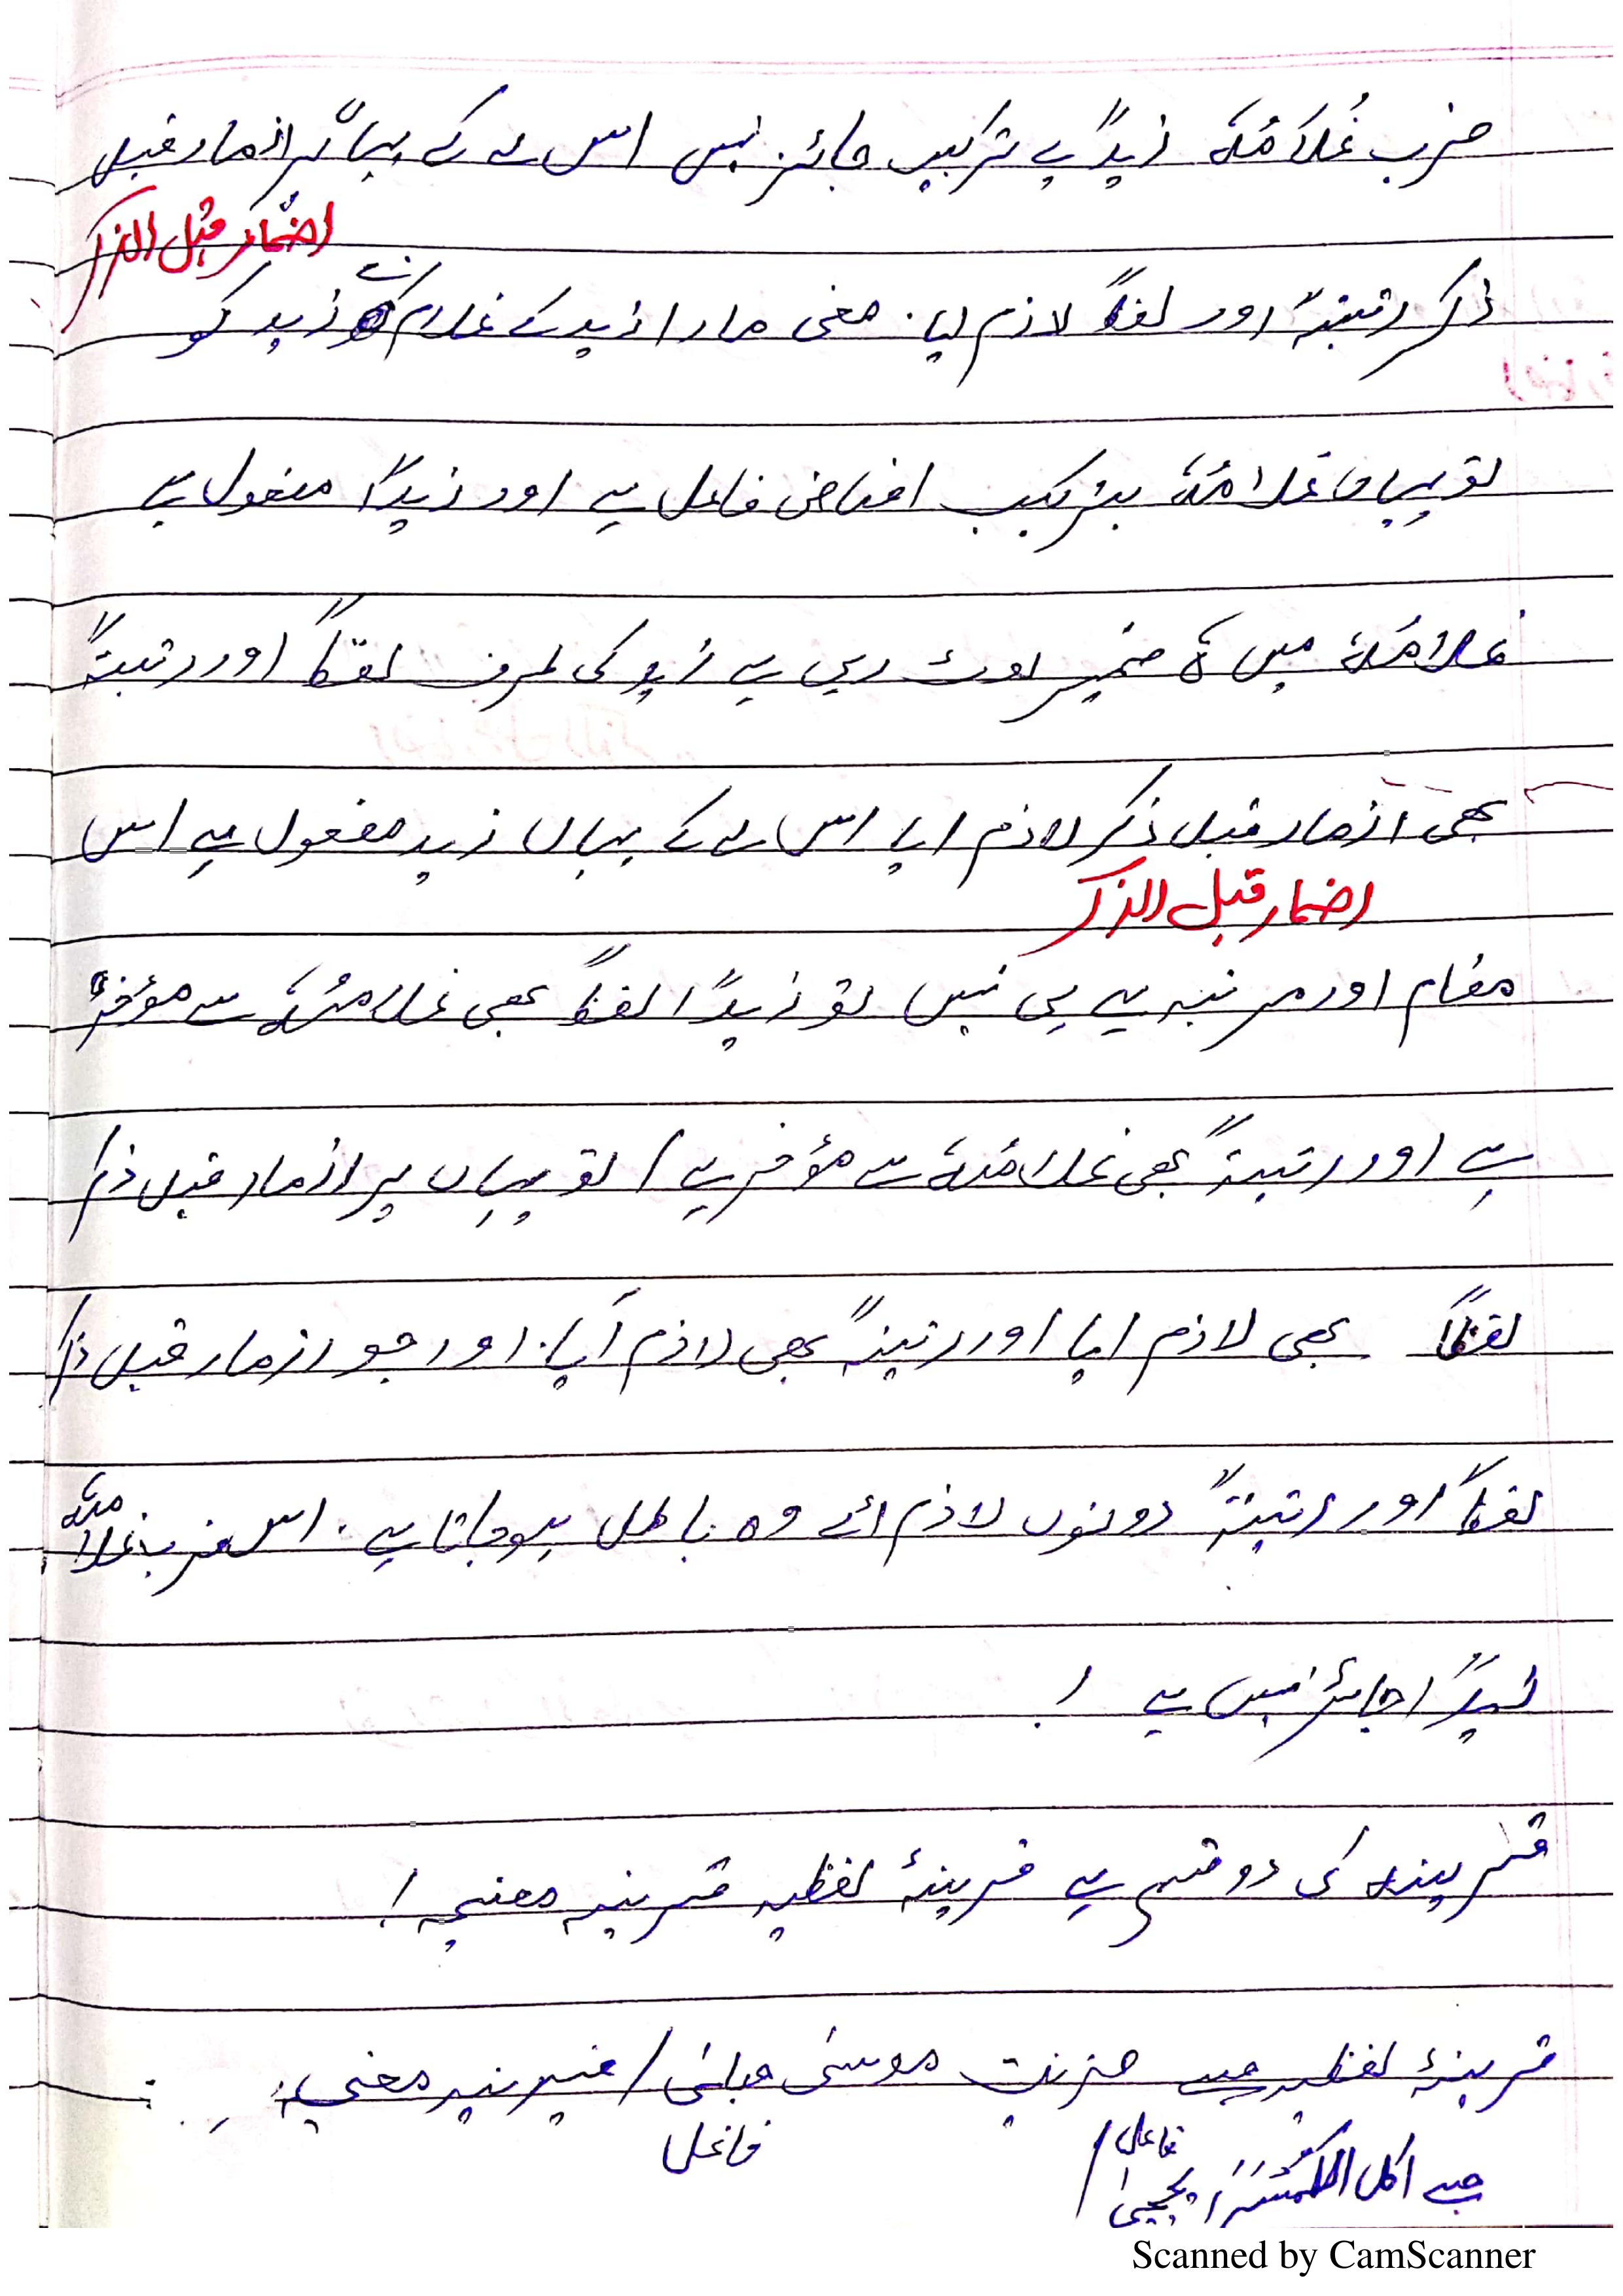 ضرب غُلَامُہٗ زیداً یے ترکیب جائز نہیں اس لے کے یہاں پر ازمار قبل
اضمار قبل الذکر
ذکر رتبتہً اور لفظاً لازم ایا. معنی مارا زید کے غلام نے زید کو
تو یہاں غلامُہٗ بترکیب اضافی فاعل ہے اور زیداً مفعول ہے
غلامُہٗ میں ہٗ ضمیر لوٹ رہی ہے زید کی طرف لفظاً اور رتبتہً
بھی ازمار قبل ذکر لازم ایا اس لے کے یہاں زید مفعول ہے اس
اضمار قبل الذکر
مقام اور مرتبہ یے ہی نہیں تو زیداً لفظاً بھی غلامُہٗ سے مؤخر
ہے اور رتبتہً بھی غلامُہٗ سے مؤخر ہے / تو یہاں پر ازمار قبل ذکر
لفظاً بھی لازم ایا اور رتبتہً بھی لازم آیا. اور جو ازمار قبل ذکر
لفظاً اور رتبتہً دونوں لازم ائے وہ باطل ہو جاتا ہے. اس ضرب غلامہٗ
زیداً جائز نہیں ہے !
قرینہ کی دو قسم ہے قرینۂ لفظیہ قرینہ معنیہ !
قرینۂ لفظیہ جیسے ضربت موسیٰ حبلیٰ / قرینہ معنیہ
فاعل
فاعل
جیسے اکل الکمثریٰ یحییٰ /
Scanned by CamScanner